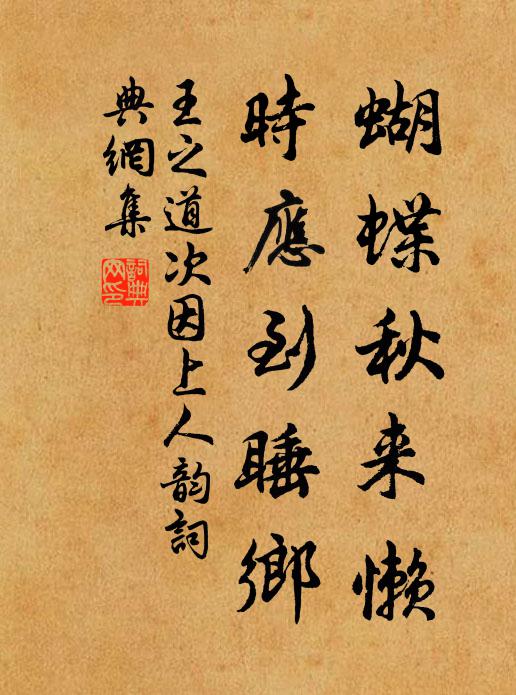 蝴蝶秋来懒
時應到睡鄉
王之道次因上人韵詞
典網集
詞典
网印